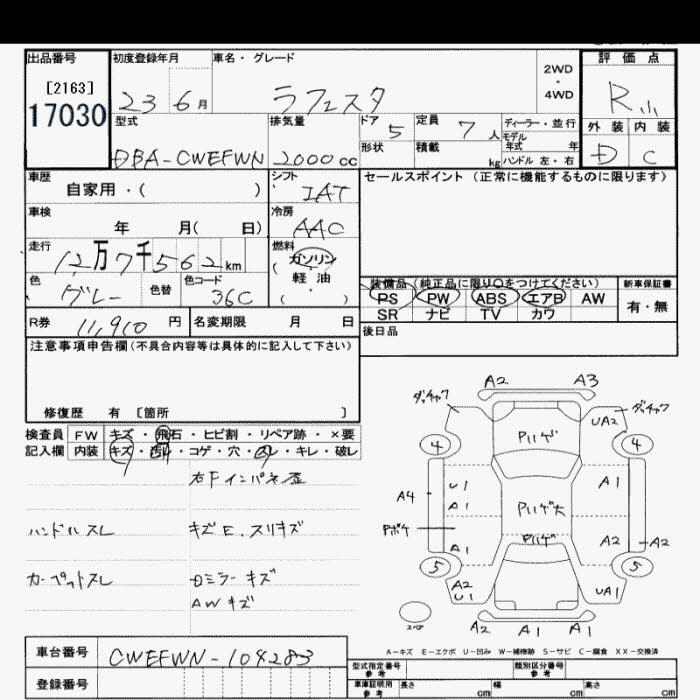 出品番号
[2163]
17030
初度登録年月
23 6月
車名・グレード
ラフェスタ
2WD
・
4WD
評価点
R
外装 内装
D C
型式
DBA-CWEFWN
排気量
2000cc
ドア 5
形状
定員 7人
積載 kg
ディーラー・並行
モデル年式 年
ハンドル 左・右
車歴
自家用・( )
シフト
IAT
車検
年 月( 日)
冷房
AAC
走行
12万7千562km
燃料
(ガソリン
軽油
・ )
色
グレー
色替
色コード
36C
R券 11,910 円
名変期限 月 日
セールスポイント (正常に機能するものに限ります)
装備品(純正品に限り○をつけてください)
PS PW ABS エアB AW
SR ナビ TV カワ
新車保証書
有・無
後日品
注意事項申告欄(不具合内容等は具体的に記入して下さい)
修復歴 有 [箇所 ]
検査員 FW キズ・飛石・ヒビ割・リペア跡・×要
記入欄 内装 キズ・汚れ・コゲ・穴・スレ・キレ・破レ
右Fインパネ歪
ハンドルスレ キズE.スリキズ
カーペットスレ Dミラーキズ
AWキズ
A2 A3
ダッチャク ダッチャク
UA2
Pハゲ
4 4
U1 A1
A4 Pハゲ大
Pボケ Pハゲ
A1 A2 A2
5 5
A2 U1 UA1
スペア
A2 A1 A1
A-キズ E-エクボ U-凹み W-補修跡 S-サビ C-腐食 XX-交換済
車台番号 CWEFWN-104283
登録番号
型式指定番号 参考
類別区分番号 参考
車庫証明用 参考 長さ cm 幅 cm 高さ cm